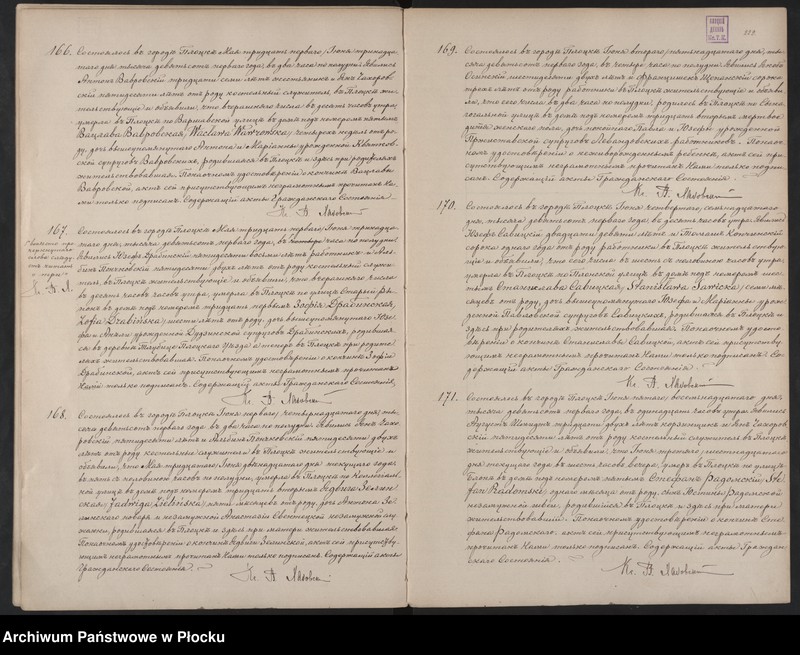 166. Состоялось въ городѣ Плоцкѣ Мая тридцать перваго /Іюня тринадца-
таго дня тысяча девятьсотъ перваго года, въ два часа по полудни. Явились
Антонъ Вавровскій тридцати семи лѣтъ
скій пятидесяти лѣтъ отъ роду костельный служитель, въ Плоцкѣ жи-
тельствующіе и объявили, что вчерашняго числа въ десять часовъ утра,
умерла въ Плоцкѣ по Варшавской улицѣ въ домѣ подъ номеромъ пятымъ
Вацлава Вавровская /Wacława Wawrowska/
ду, дочь вышеупомянутаго Антона и Маріанны урожденной
ской супруговъ Вавровскихъ, родившаяся въ Плоцкѣ и здѣсь при родителяхъ
жительствовавшая. Понаочномъ удостовѣреніи о кончинѣ Вацлавы
Вавровской, актъ сей присутствующимъ неграмотнымъ прочитанъ На-
ми только подписанъ. Содержащій акты Гражданскаго Состоянія.
167. Состоялось въ городѣ Плоцкѣ Мая тридцать перваго /Іюня тринадца-
таго дня, тысяча девятьсотъ перваго года, въ четыре часа по полудни
Явились Іосифъ Драбинскій пятидесяти восьми лѣтъ работникъ и Аль-
бинъ Пончковскій пятидесяти двухъ лѣтъ отъ роду костельный служи-
тель, въ Плоцкѣ жительствующіе и объявили, что вчерашняго числа
въ десять часовъ утра, умерла въ Плоцкѣ по улицѣ Старый ры-
нокъ въ домѣ подъ номеромъ тридцать первымъ Зофія Драбинская,
/Zofia Drabińska/ шести лѣтъ отъ роду, дочь вышеупомянутаго Іосе-
фа и Анели урожденной супруговъ Драбинскихъ, родившая-
ся въ деревнѣ Плоцкаго Уѣзда а теперь въ Плоцкѣ при родите-
ляхъ жительствовавшая. Понаочномъ удостовѣреніи о кончинѣ Зофіи
Драбинской, актъ сей присутствующимъ неграмотнымъ прочитанъ
Нами только подписанъ. Содержащій акты Гражданскаго Состоянія.
168. Состоялось въ городѣ Плоцкѣ Іюня перваго /четырнадцатаго дня, ты-
сяча девятьсотъ перваго года въ два часа по полудни. Явились Янъ Заха-
ровскій пятидесяти лѣтъ и Альбинъ Пончковскій пятидесяти двухъ
лѣтъ отъ роду костельные служители въ Плоцкѣ жительствующіе и
объявили, что Мая тридцатаго /Іюня двѣнадцатаго дня текущаго года,
въ пять съ половиною часовъ по полудни, умерла въ Плоцкѣ по
ной улицѣ въ домѣ подъ номеромъ тридцать вторымъ Ядвига Зелин-
ская /Jadwiga Zielińska/ пяти мѣсяцевъ отъ роду, дочь Антона Зе-
линскаго повара и незамужней
жены, родившаяся въ Плоцкѣ и здѣсь при матери жительствовавшая.
Понаочномъ удостовѣреніи о кончинѣ Ядвиги Зелинской, актъ сей присутству-
ющимъ неграмотнымъ прочитанъ Нами только подписанъ. Содержащій акты
Гражданскаго Состоянія.
169. Состоялось въ городѣ Плоцкѣ Іюня втораго /пятнадцатаго дня, ты-
сяча девятьсотъ перваго года, въ четыре часа по полудни. Явились Якобъ
Осинскій шестидесяти двухъ лѣтъ и Францишекъ сорока
трехъ лѣтъ отъ роду работники въ Плоцкѣ жительствующіе и объяви-
ли, что сего числа въ два часа по полудни, родилось въ Плоцкѣ по Сина-
гогальной улицѣ въ домѣ подъ номеромъ тридцать вторымъ мертвое
дитя женскаго пола, дочь Павла и Іосефы урожденной
супруговъ Левандовскихъ работниковъ. Понаоч-
номъ удостовѣреніи о мертворожденномъ ребенкѣ, актъ сей при-
сутствующимъ неграмотнымъ прочитанъ Нами только подпи-
санъ. Содержащій акты Гражданскаго Состоянія.
170. Состоялось въ городѣ Плоцкѣ Іюня четвертаго, /семнадцатаго
дня, тысяча девятьсотъ перваго года, въ десять часовъ утра. Явились
Іосефъ Савицкій двадцати девяти лѣтъ и Томашъ
сорока одного года отъ роду работники въ Плоцкѣ жительствую-
щіе и объявили, что сего числа въ шесть съ половиною часовъ утра,
умерла въ Плоцкѣ по улицѣ въ домѣ подъ номеромъ шес-
тымъ Станислава Савицкая, /Stanisława Sawicka/ семи мѣ-
сяцевъ отъ роду, дочь вышеупомянутаго Іосефа и Маріанны урож-
денной Павловской супруговъ Савицкихъ, родившаяся въ Плоцкѣ и
здѣсь при родителяхъ жительствовавшая. Понаочномъ удосто-
вѣреніи о кончинѣ Станиславы Савицкой, актъ сей присутству-
ющимъ неграмотнымъ прочитанъ Нами только подписанъ. Со-
держащій акты Гражданскаго Состоянія.
171. Состоялось въ городѣ Плоцкѣ Іюня пятаго /восемнадцатаго дня,
тысяча девятьсотъ перваго года, въ одинадцать часовъ утра. Явились
Августъ тридцати двухъ лѣтъ и Янъ Захаров-
скій пятидесяти лѣтъ отъ роду костельный служитель въ Плоцкѣ
жительствующіе и объявили, что Іюня третьяго /шестнадцатаго
дня текущаго года въ шесть часовъ вечера, умеръ въ Плоцкѣ по улицѣ
въ домѣ подъ номеромъ пятымъ Стефанъ Радомскій /Ste-
fan Radomski/ одного мѣсяца отъ роду, сынъ Радомской
незамужней родившійся въ Плоцкѣ и здѣсь при матери
жительствовавшій. Понаочномъ удостовѣреніи о кончинѣ Сте-
фана Радомскаго, актъ сей присутствующимъ неграмотнымъ
прочитанъ Нами только подписанъ. Содержащій акты Граждан-
скаго Состоянія.
Archiwum Państwowe w Płocku